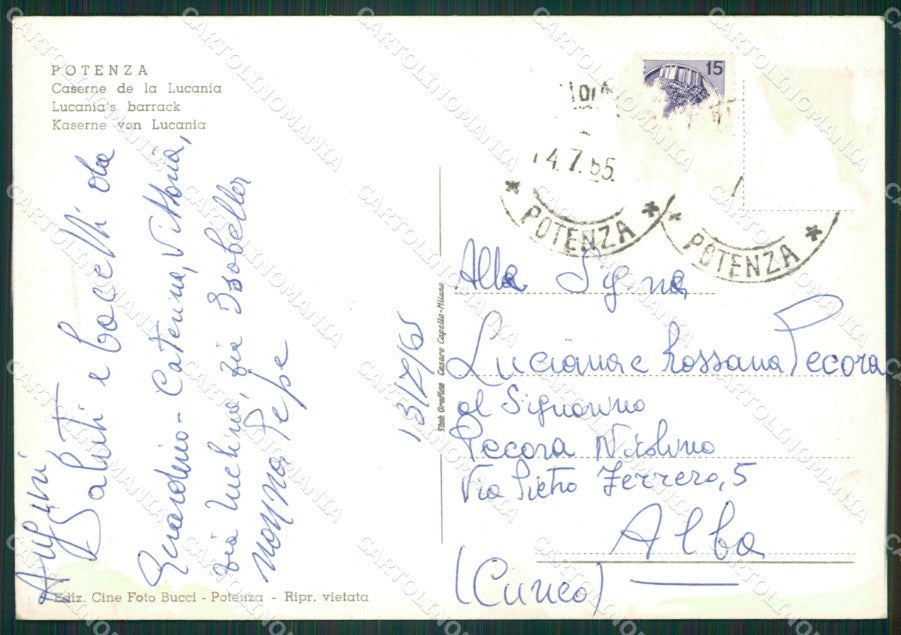 POTENZA
Caserne de la Lucania
Lucania's barrack
Kaserne von Lucania
15
14.7.65.
POTENZA
POTENZA
Auguri
Saluti e bacetti da
Gerardino - Caterina, Vittoria,
zia zia Isabella
nonna Pepe
13/7/65
Stab. Grafico Cesare Capello-Milano
Alla Sig.na
Luciana e Rossana Pecora
al Signorino
Pecora Nicolino
Via Pietro Ferrero, 5
Alba
(Cuneo)
Ediz. Cine Foto Bucci - Potenza - Ripr. vietata
CARTOLINOMANIA